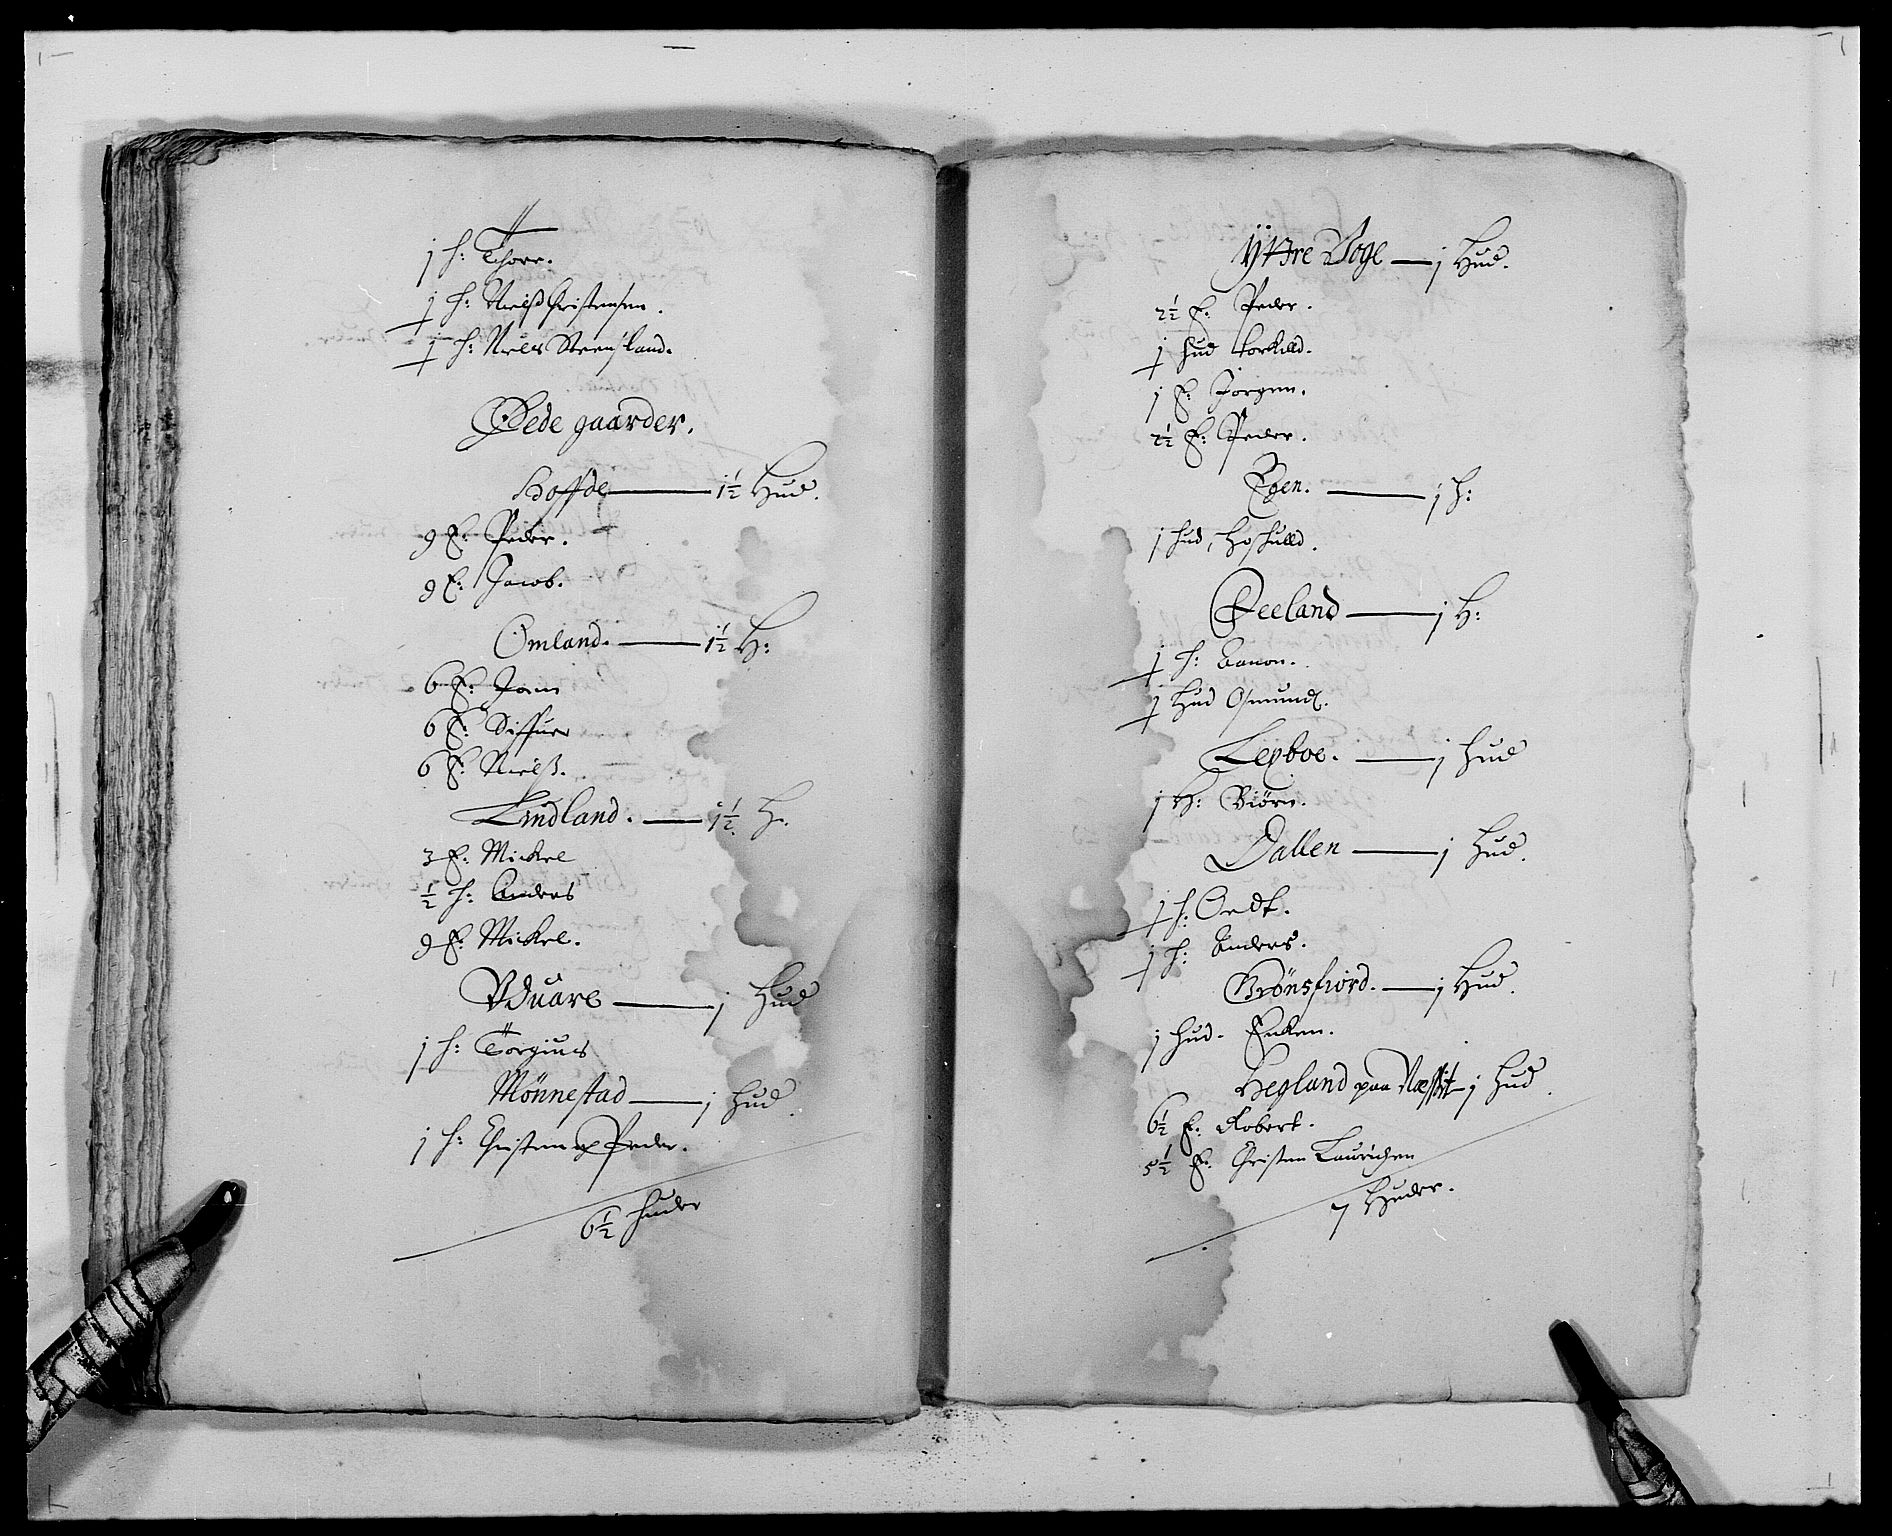 j h: Thorr.
j h: Nielß Christensen.
j h: Niels Steensland.
Øede gaarder.
Hoffde 1½ Hud.
9 E: Peder.
9 E: Jacob.
Omland. 1½ H:
6 E: Jonn
6 E: Siffuer
6 E: Nielß.
Lindland. 1½ H.
3 E: Mickel
½ h: Anders
9 E: Mickel.
Vduare j Hud
j h: Torgiuls
Mönnestad j hud.
j h: Christen og Peder.
6½ huder
Yttre Aoge j Hud.
2½ E: Peder.
j hud torkilld.
j E: Jørgen.
2½ E: Peder.
Egen. j h:
j hud, Hoskulld.
Øeeland j H:
j h: Aanon.
j Hud Osmund.
Lexboe. j hud
j H: Biörn.
Dallen j Hud.
j h: Oedt.
j h: Anders.
Grönsfiord. j Hud.
j hud. Encken.
Hegland paa Næssit j hud.
6½ E: Robert.
5½ E: Christen Lauridzen
7 Huder.